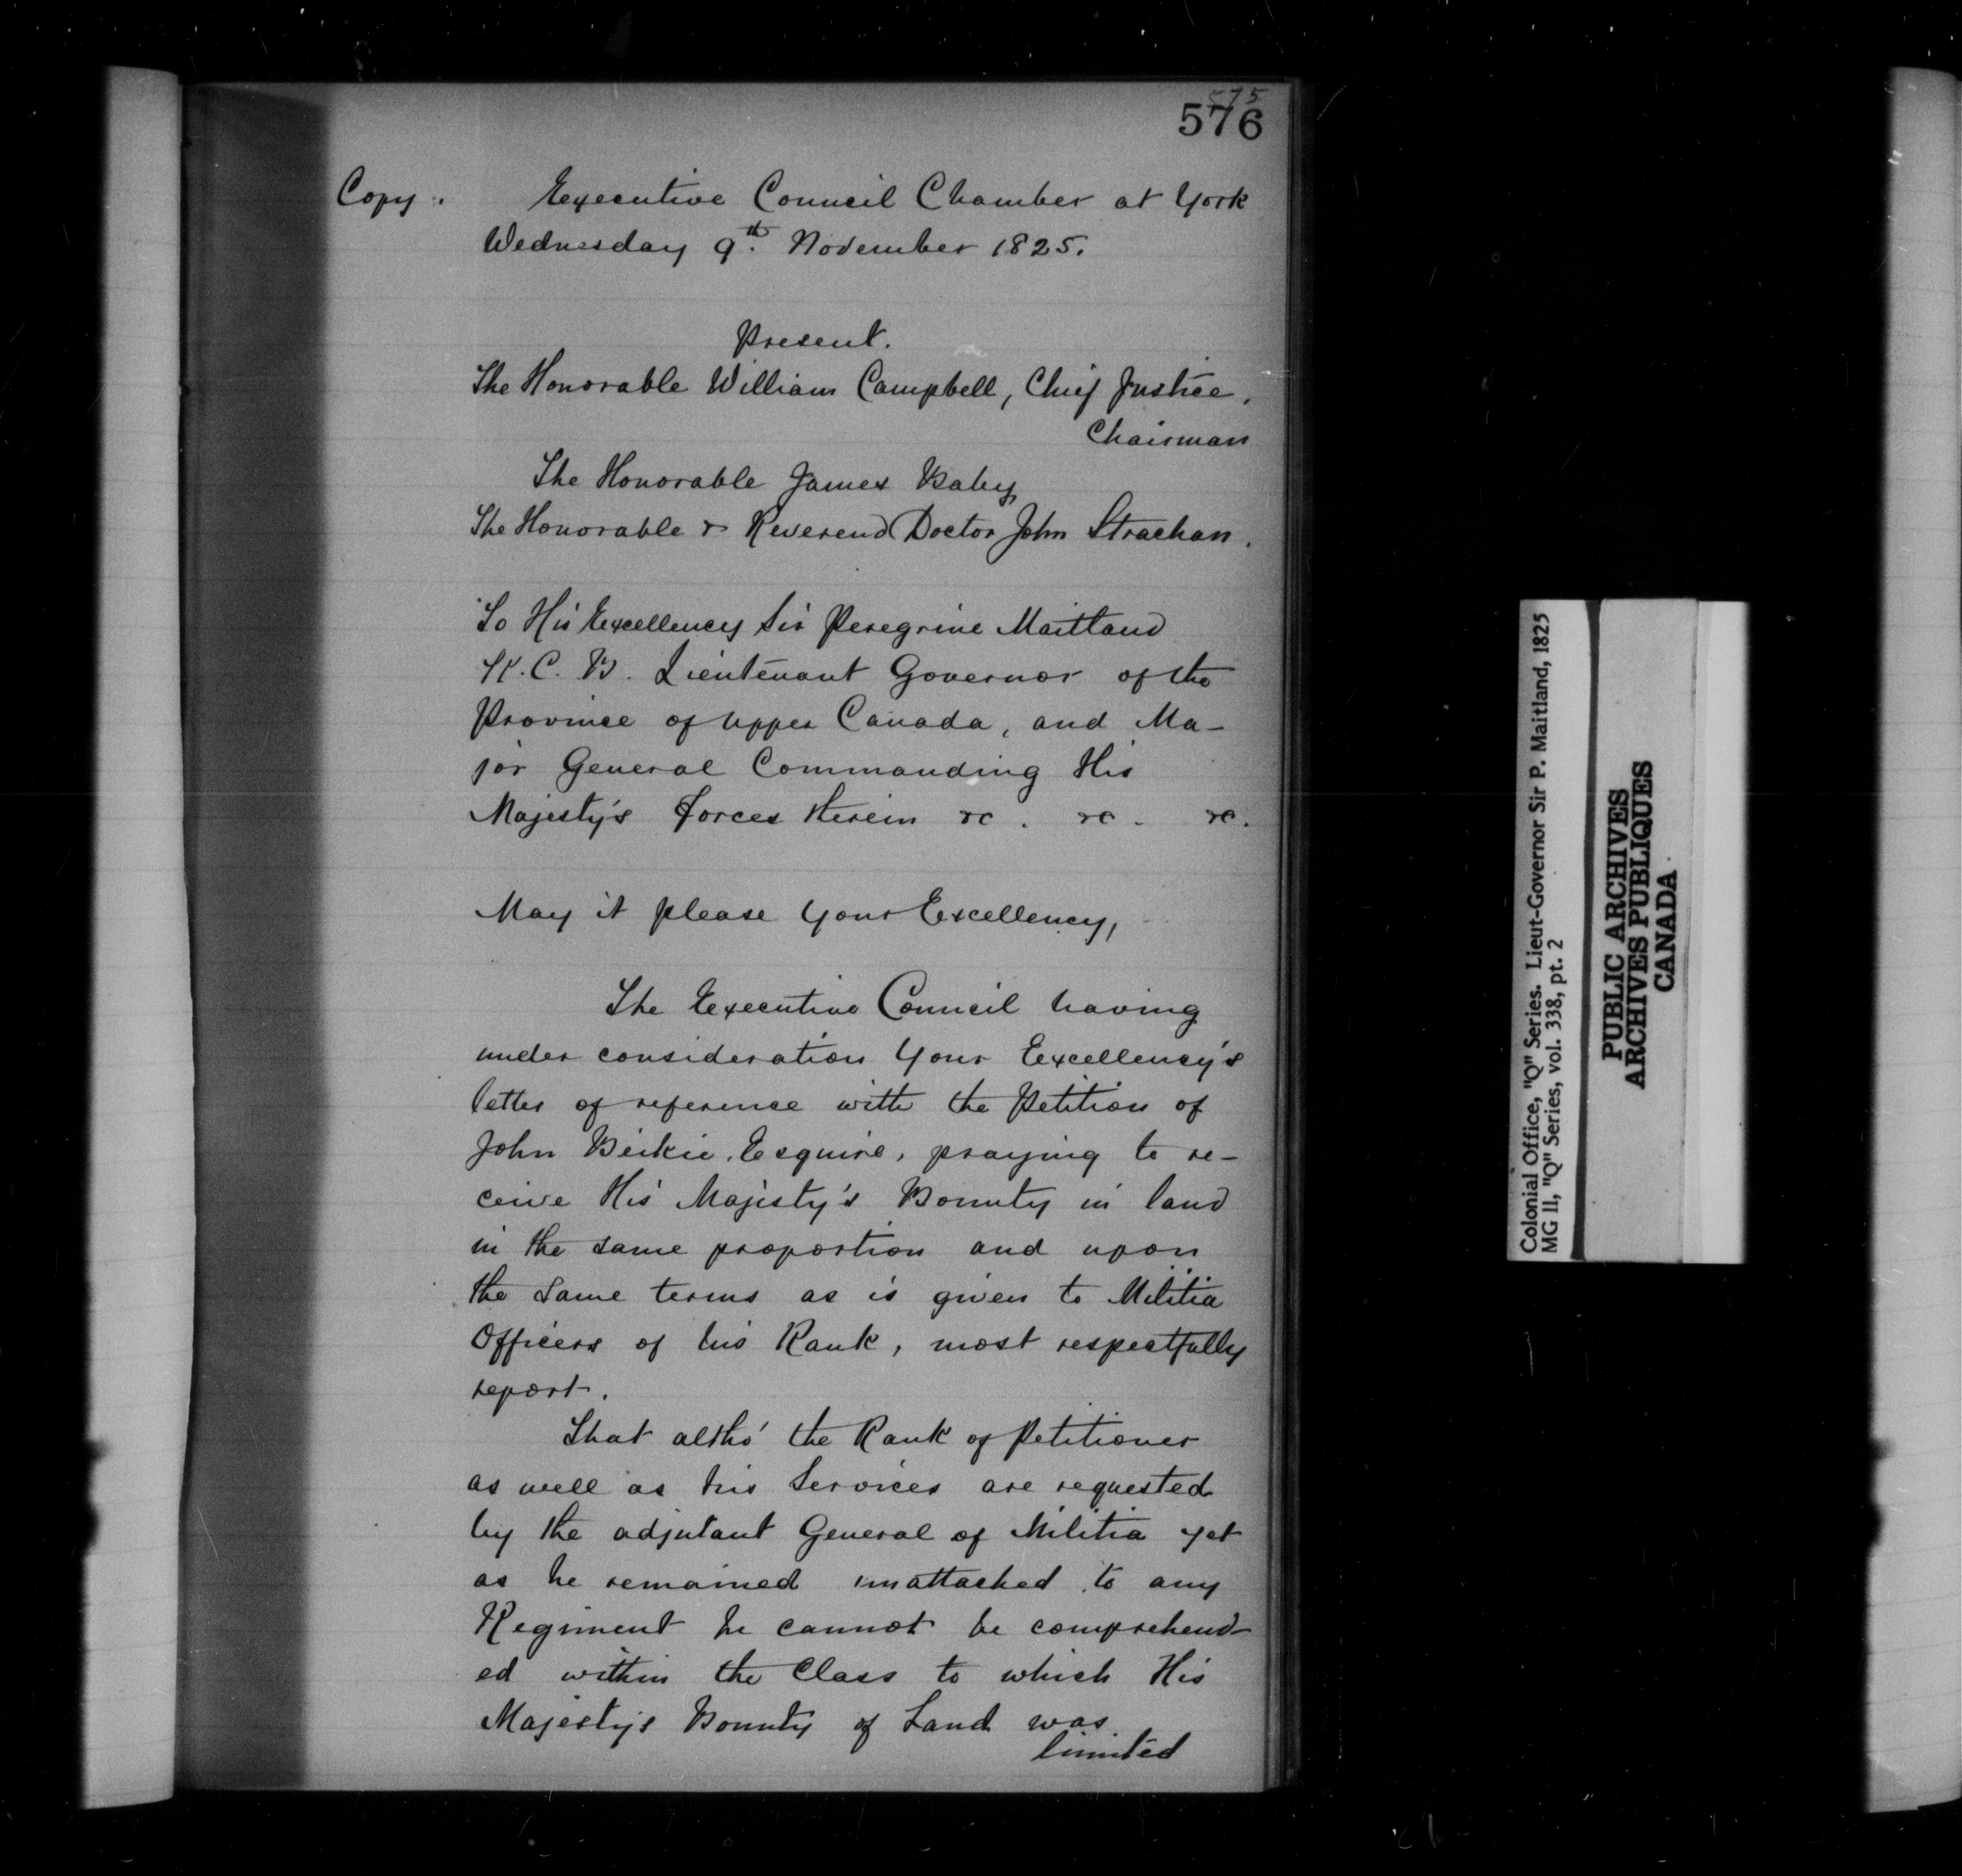 575
576
Copy.
Executive Council Chamber at York
Wednesday 9th. November 1825.
Present.
The Honorable William Campbell, Chief Justice,
Chairman
The Honorable James Baby
The Honorable & Reverend Doctor John Strachan.
To His Excellency Sir Peregrine Maitland
K.C.B. Lieutenant Governor of the
Province of Upper Canada, and Ma-
jor General Commanding His
Majesty's Forces therein &c. &c. &c.
May it please Your Excellency,
The Executive Council having
under consideration Your Excellency's
letter of reference with the Petition of
John Beikie, Esquire, praying to re-
ceive His Majesty's Bounty in land
in the same proportion and upon
the same terms as is given to Militia
Officers of his Rank, most respectfully
report.
That altho' the Rank of Petitioner
as well as his Services are requested
by the adjutant General of Militia yet
as he remained unattached to any
Regiment he cannot be comprehend-
ed within the Class to which His
Majesty's Bounty of Land was
limited
Colonial Office, "Q" Series. Lieut-Governor Sir P. Maitland, 1825
MG 11, "Q" Series, vol. 338, pt. 2
PUBLIC ARCHIVES
ARCHIVES PUBLIQUES
CANADA